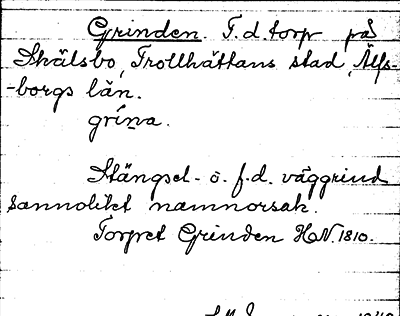 Grinden. F.d. torp på
Skälsbo, Trollhättans stad, Älfs-
-borgs län.
grína.
Stängsel- o. f.d. väggrind
sannolikt namnorsak.
Torpet Grinden HN. 1810.